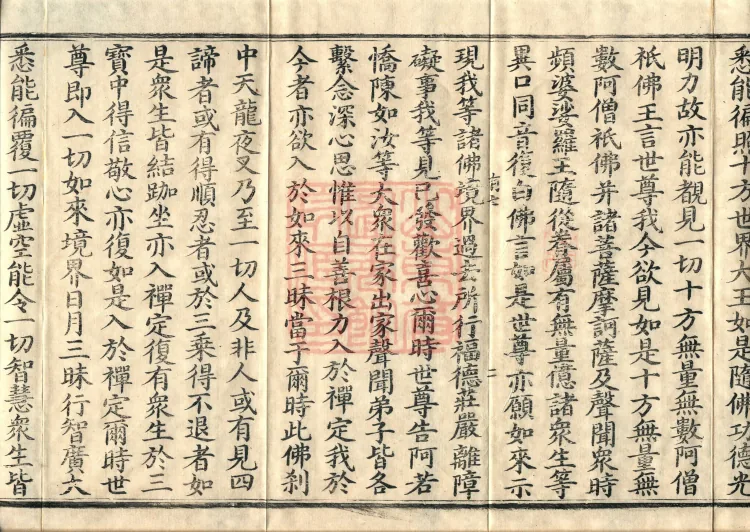 悉能徧照十方世界大王如是隨佛功德光
明力故亦能覩見一切十方無量無數阿僧
祇佛王言世尊我今欲見如是十方無量無
數阿僧祇佛并諸菩薩摩訶薩及聲聞衆時
頻婆娑羅王隨從眷屬有無量億諸衆生等
異口同音復白佛言如是世尊亦願如來示
現我等諸佛境界過去所行福德莊嚴離障
礙事我等見已發歡喜心爾時世尊告阿若
憍陳如汝等大衆在家出家聲聞弟子皆各
繫念深心思惟以自善根力入於禪定我於
今者亦欲入於如來三昧當于爾時此佛刹
中天龍夜叉乃至一切人及非人或有見四
諦者或有得順忍者或於三乘得不退者如
是衆生皆結跏坐亦入禪定復有衆生於三
寶中得信敬心亦復如是入於禪定爾時世
尊即入一切如來境界日月三昧行智廣大
悉能徧覆一切虛空能令一切智慧衆生皆